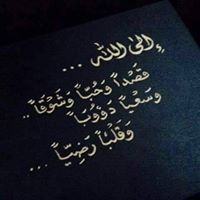 إِلىَ اللهِ ...
قَصْداً وَحُبّاً وَشَوْقاً ..
وَسَعْياً دَؤُوْبَاً
وَقَلْباً رَضِيّاً ...